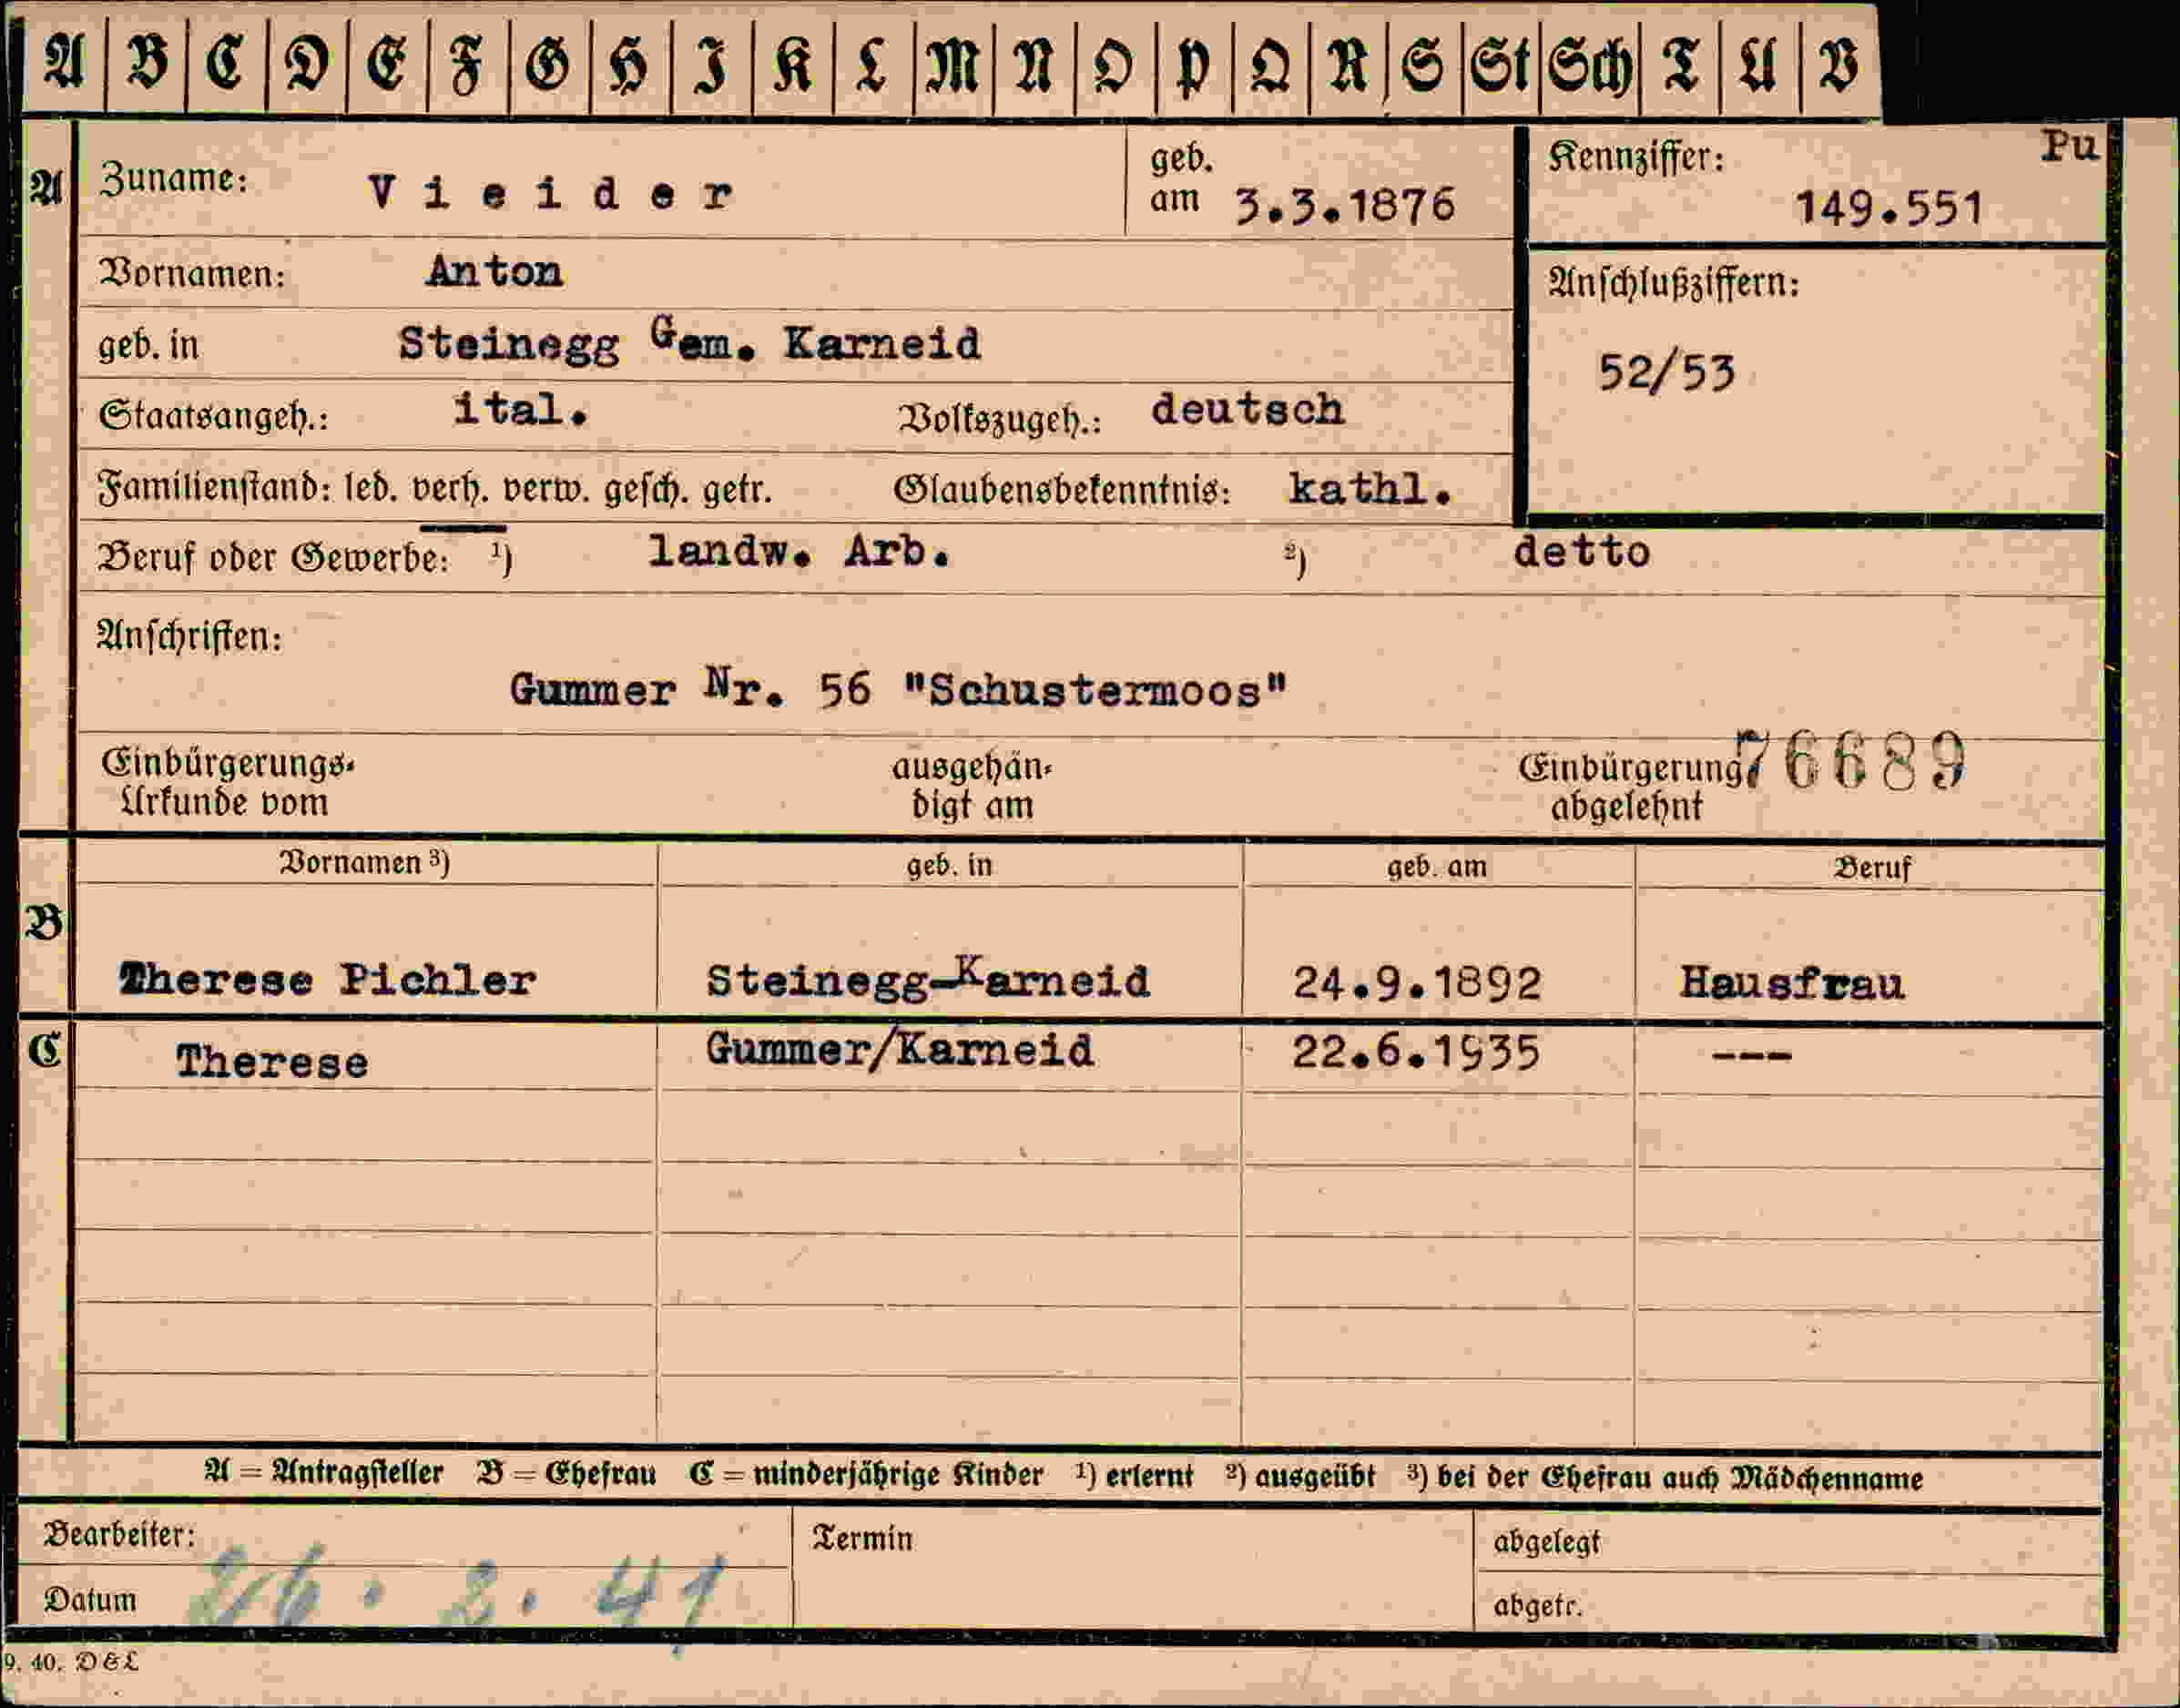 A B C D E F G H I K L M N O P Q R S St Sch T U V
A Zuname: Vieider geb. am 3.3.1876 Kennziffer: Pu 149.551
Vornamen: Anton
Anschlußziffern: 52/53
geb. in Steinegg Gem. Karneid
Staatsangeh.: ital. Volkszugeh.: deutsch
Familienstand: led. verh. verw. gesch. getr. Glaubensbekenntnis: kathl.
Beruf oder Gewerbe: ¹) landw. Arb. ²) detto
Anschriften:
Gummer Nr. 56 "Schustermoos"
Einbürgerungs-Urkunde vom ausgehän-digt am Einbürgerung abgelehnt 76689
Vornamen ³) geb. in geb. am Beruf
B Therese Pichler Steinegg-Karneid 24.9.1892 Hausfrau
C Therese Gummer/Karneid 22.6.1935 ---
A = Antragsteller B = Ehefrau C = minderjährige Kinder ¹) erlernt ²) ausgeübt ³) bei der Ehefrau auch Mädchenname
Bearbeiter: Termin abgelegt
Datum 26. 2. 41 abgetr.
9. 40. D&L